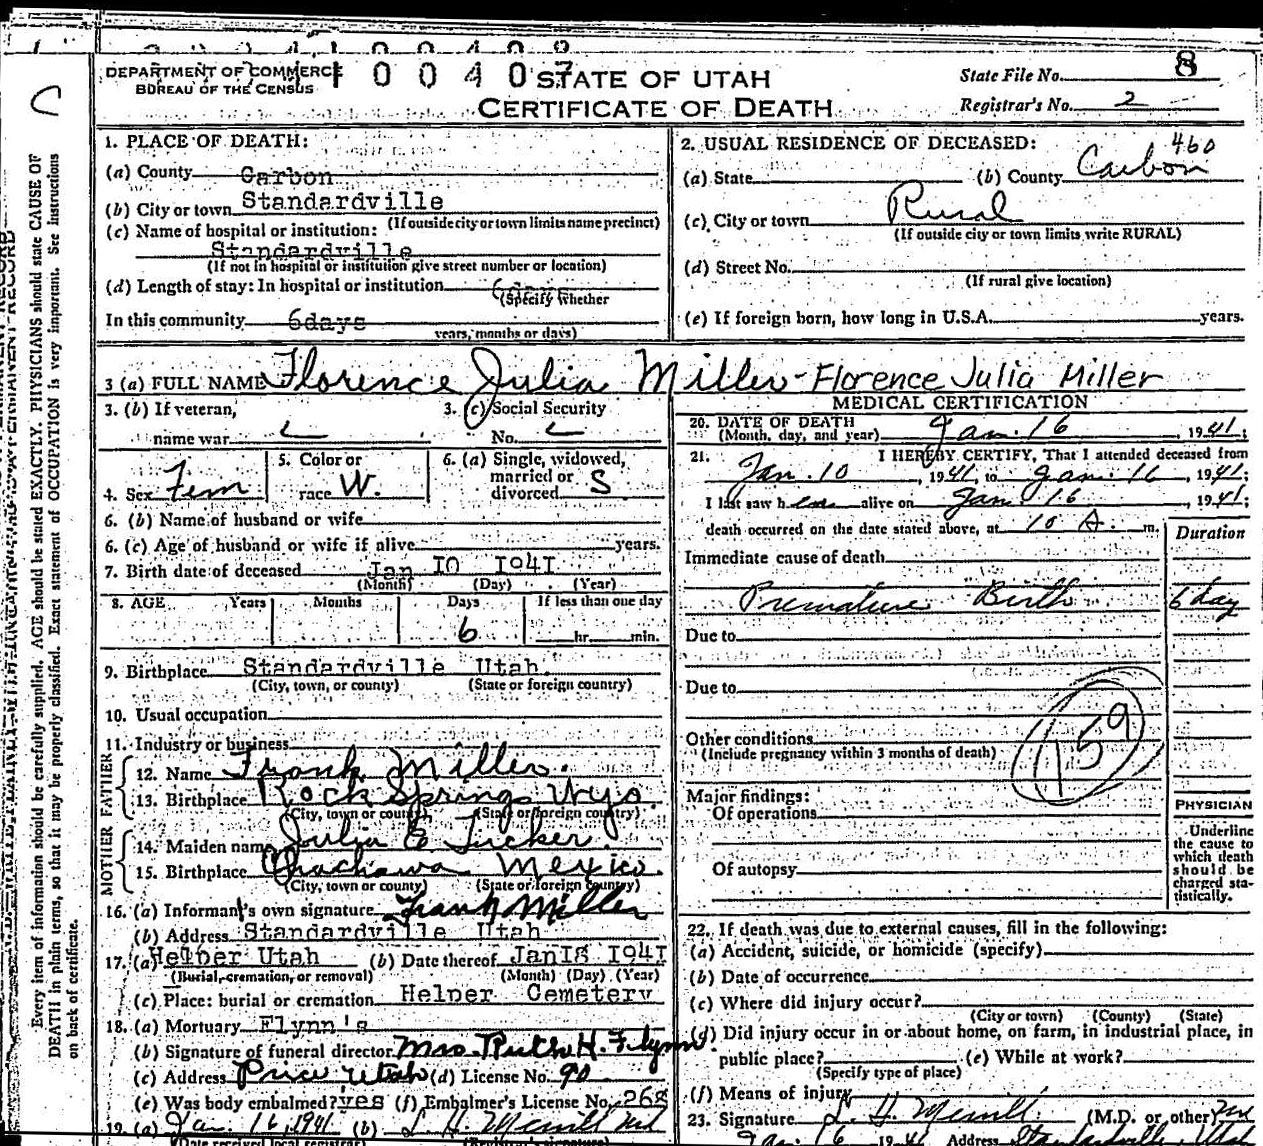 DEPARTMENT OF COMMERCE
BUREAU OF THE CENSUS
0 0 4 0 7
STATE OF UTAH
CERTIFICATE OF DEATH
State File No. 8
Registrar's No. 2
C
1. PLACE OF DEATH:
(a) County Carbon
(b) City or town Standardville
(If outside city or town limits name precinct)
(c) Name of hospital or institution:
Standardville
(If not in hospital or institution give street number or location)
(d) Length of stay: In hospital or institution 6
(Specify whether
In this community 6days
years, months or days)
2. USUAL RESIDENCE OF DECEASED:
460
(a) State (b) County Carbon
(c) City or town Rural
(If outside city or town limits write RURAL)
(d) Street No.
(If rural give location)
(e) If foreign born, how long in U.S.A. years.
3 (a) FULL NAME Florence Julia Miller - Florence Julia Miller
3. (b) If veteran,
name war
3. (c) Social Security
No.
4. Sex Fem
5. Color or
race W.
6. (a) Single, widowed,
married or
divorced S
6. (b) Name of husband or wife
6. (c) Age of husband or wife if alive years.
7. Birth date of deceased Jan 10 1941
(Month) (Day) (Year)
8. AGE Years Months Days If less than one day
6 hr. min.
9. Birthplace Standardville Utah.
(City, town, or county) (State or foreign country)
10. Usual occupation
11. Industry or business
FATHER
12. Name Frank Miller.
13. Birthplace Rock Springs Wyo.
(City, town or county) (State or foreign country)
MOTHER
14. Maiden name Julia E Tucker.
15. Birthplace Mexico.
(City, town or county) (State or foreign country)
16. (a) Informant's own signature Frank Miller
(b) Address Standardville Utah
17. (a) Helper Utah (b) Date thereof Jan 18 1941
(Burial, cremation, or removal) (Month) (Day) (Year)
(c) Place: burial or cremation Helper Cemetery
18. (a) Mortuary Flynn's
(b) Signature of funeral director Mrs. Ruth H. Flynn
(c) Address Price Utah (d) License No. 90
(e) Was body embalmed? yes (f) Embalmer's License No. 268
19. (a) Jan. 16, 1941 (b) L. H. Merrill Md
(Date received local registrar) (Registrar's signature)
MEDICAL CERTIFICATION
20. DATE OF DEATH
(Month, day, and year) Jan. 16, 1941;
21. I HEREBY CERTIFY, That I attended deceased from
Jan. 10, 1941, to Jan. 16, 1941;
I last saw h alive on Jan 16, 1941;
death occurred on the date stated above, at 10 A. m.
Duration
Immediate cause of death
Premature Birth 6 day
Due to
Due to
Other conditions
(Include pregnancy within 3 months of death)
159
Major findings:
Of operations
Of autopsy
PHYSICIAN
Underline
the cause to
which death
should be
charged sta-
tistically.
22. If death was due to external causes, fill in the following:
(a) Accident, suicide, or homicide (specify)
(b) Date of occurrence
(c) Where did injury occur?
(City or town) (County) (State)
(d) Did injury occur in or about home, on farm, in industrial place, in
public place? (e) While at work?
(Specify type of place)
(f) Means of injury
23. Signature L. H. Merrill. (M.D. or other) Md
Jan. 16 1941 Address Standardville Utah
Every item of information should be carefully supplied. AGE should be stated EXACTLY. PHYSICIANS should state CAUSE OF
DEATH in plain terms, so that it may be properly classified. Exact statement of OCCUPATION is very important. See instructions
on back of certificate.